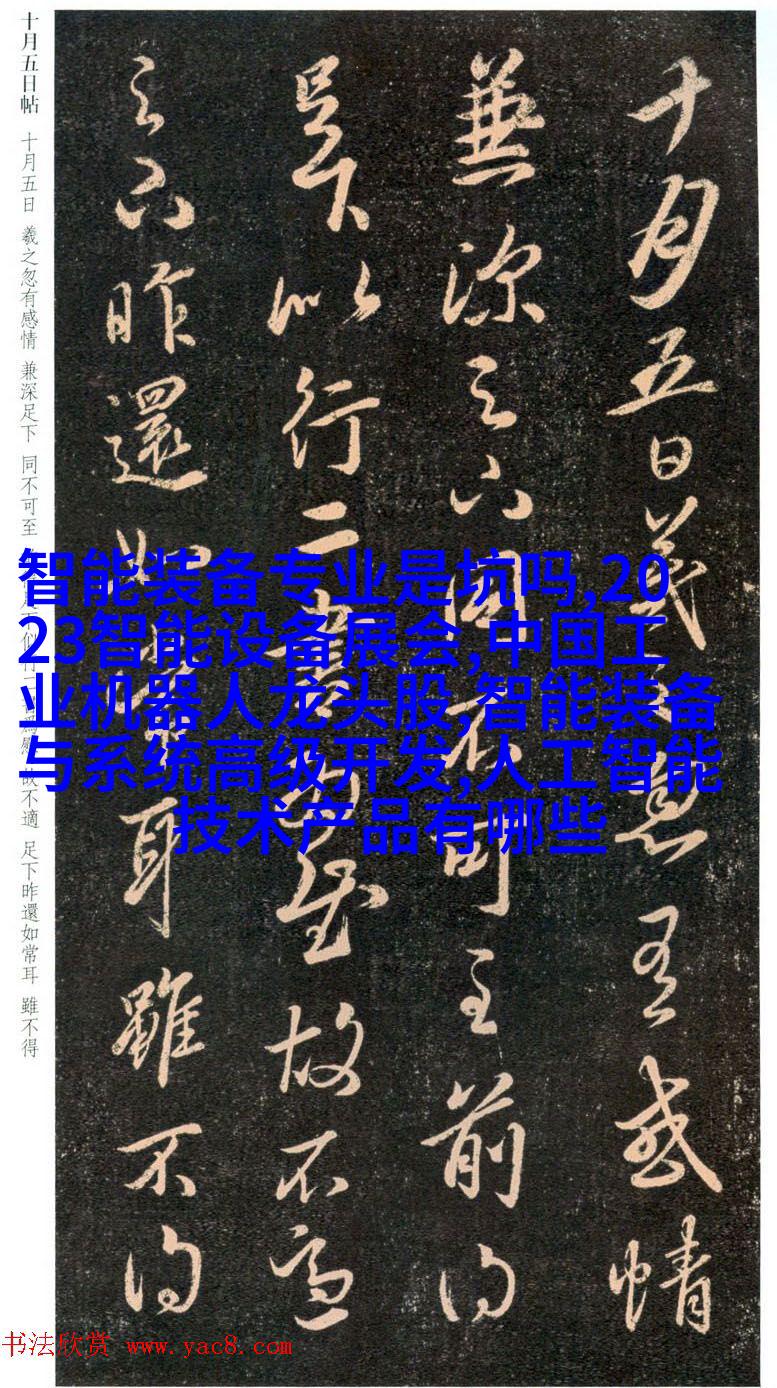 十月五日帖 十月五日 羲之忽有感情 兼深足下 同不可至 故不適 足下昨還如常耳 雖不得
十月五日羲之忽有感情
兼深足下同不可至前得
以行二故不適
足下昨還如常耳雖不得
智能装备专业是坑吗,20
23智能设备展会,中国工
业机器人龙头股,智能装备
与系统高级开发,人工智能
技术产品有哪些
书法欣赏 www.yac8.com